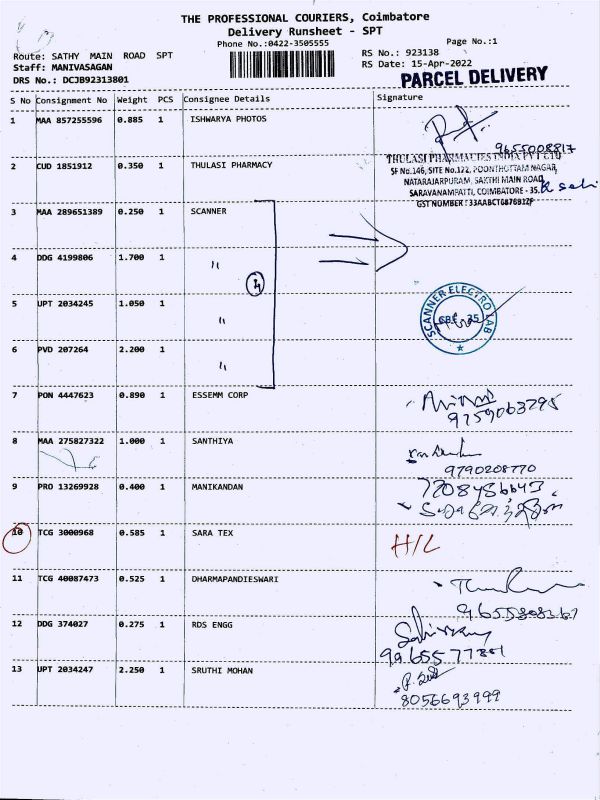 THE PROFESSIONAL COURIERS, Coimbatore
Delivery Runsheet - SPT
Phone No.:0422-3505555
Page No.:1
Route: SATHY MAIN ROAD SPT
RS No.: 923138
Staff: MANIVASAGAN
RS Date: 15-Apr-2022
DRS No.: DCJB92313801
PARCEL DELIVERY
S No Consignment No Weight PCS Consignee Details Signature
1 MAA 857255596 0.885 1 ISHWARYA PHOTOS
9655008817
2 CUD 1851912 0.350 1 THULASI PHARMACY
THULASI PHARMACIES INDIA PVT LTD
SF No.146, SITE No.122, POONTHOTTAM NAGAR,
NATARAJARPURAM, SAKTHI MAIN ROAD,
SARAVANAMPATTI, COIMBATORE - 35.
GST NUMBER : 33AABCT0876B1ZF
3 MAA 289651389 0.250 1 SCANNER
4 DDG 4199806 1.700 1 "
4
5 UPT 2034245 1.050 1 "
SCANNER ELECTRO LAB
CBE - 35
6 PVD 207264 2.200 1 "
7 PON 4447623 0.890 1 ESSEMM CORP
9759063295
8 MAA 275827322 1.000 1 SANTHIYA
9790208770
9 PRO 13269928 0.400 1 MANIKANDAN
7208486643
10 TCG 3000968 0.585 1 SARA TEX
H/L
11 TCG 40087473 0.525 1 DHARMAPANDIESWARI
12 DDG 374027 0.275 1 RDS ENGG
13 UPT 2034247 2.250 1 SRUTHI MOHAN
8056693999